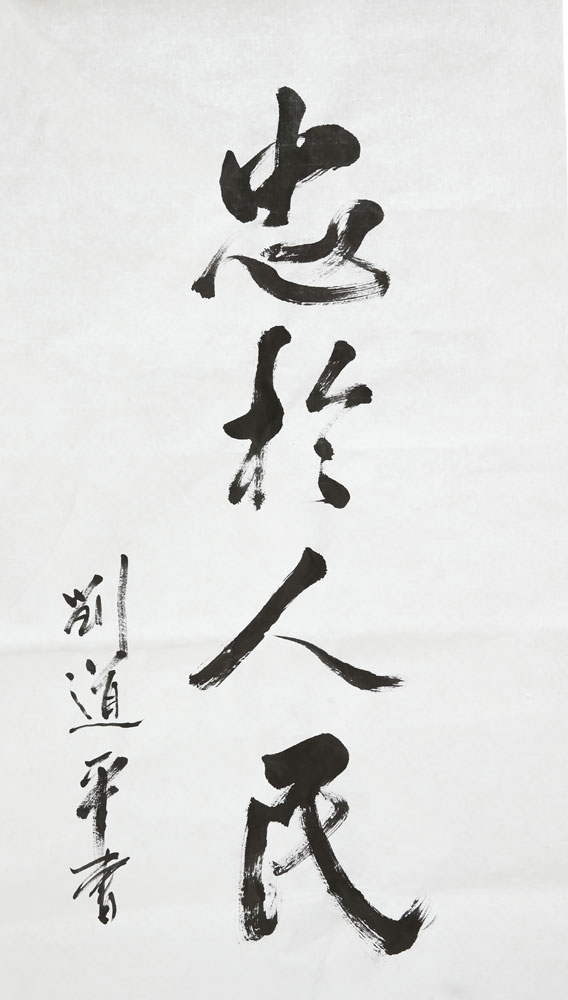 忠於人民
劉道平書